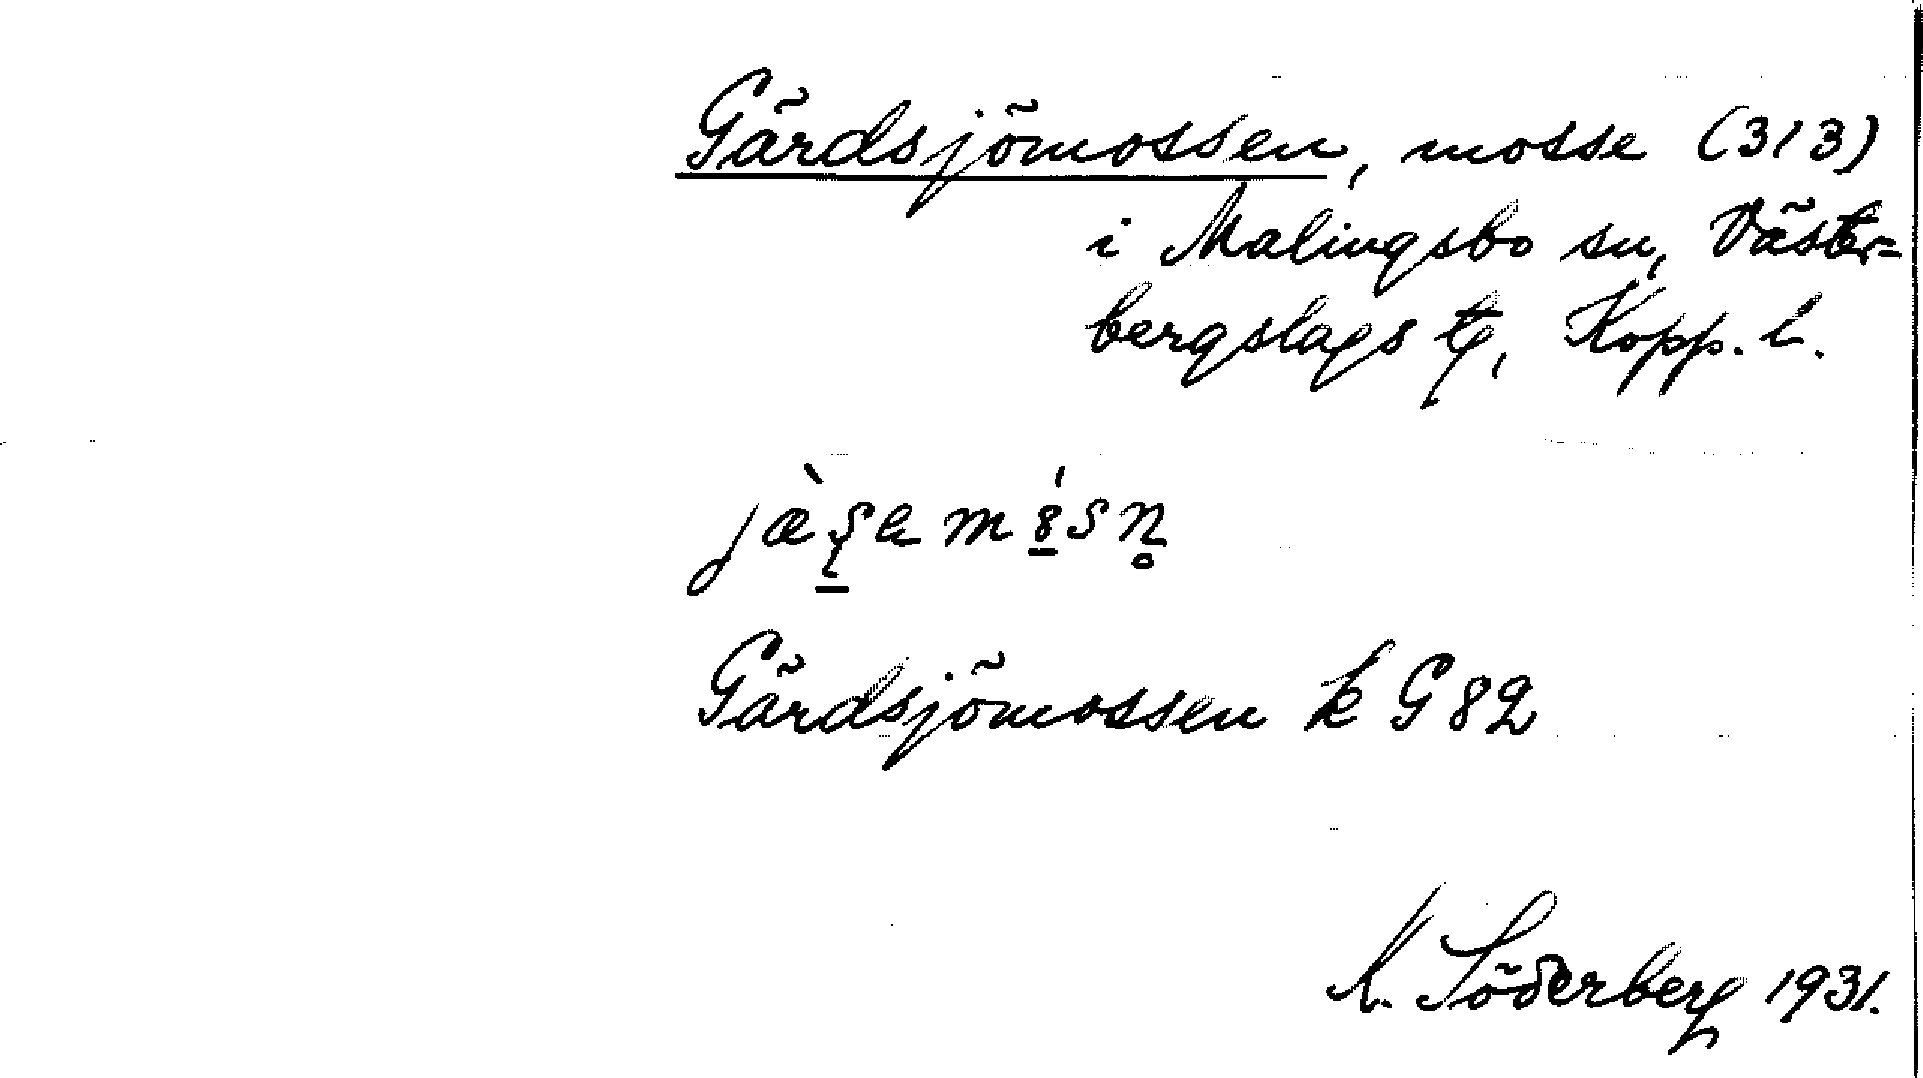 Gärdsjömossen, mosse (313)
i Malingsbo sn, Väster=
bergslags tg, Kopp. l.
Gärdsjömossen k G 82
K. Söderberg 1931.